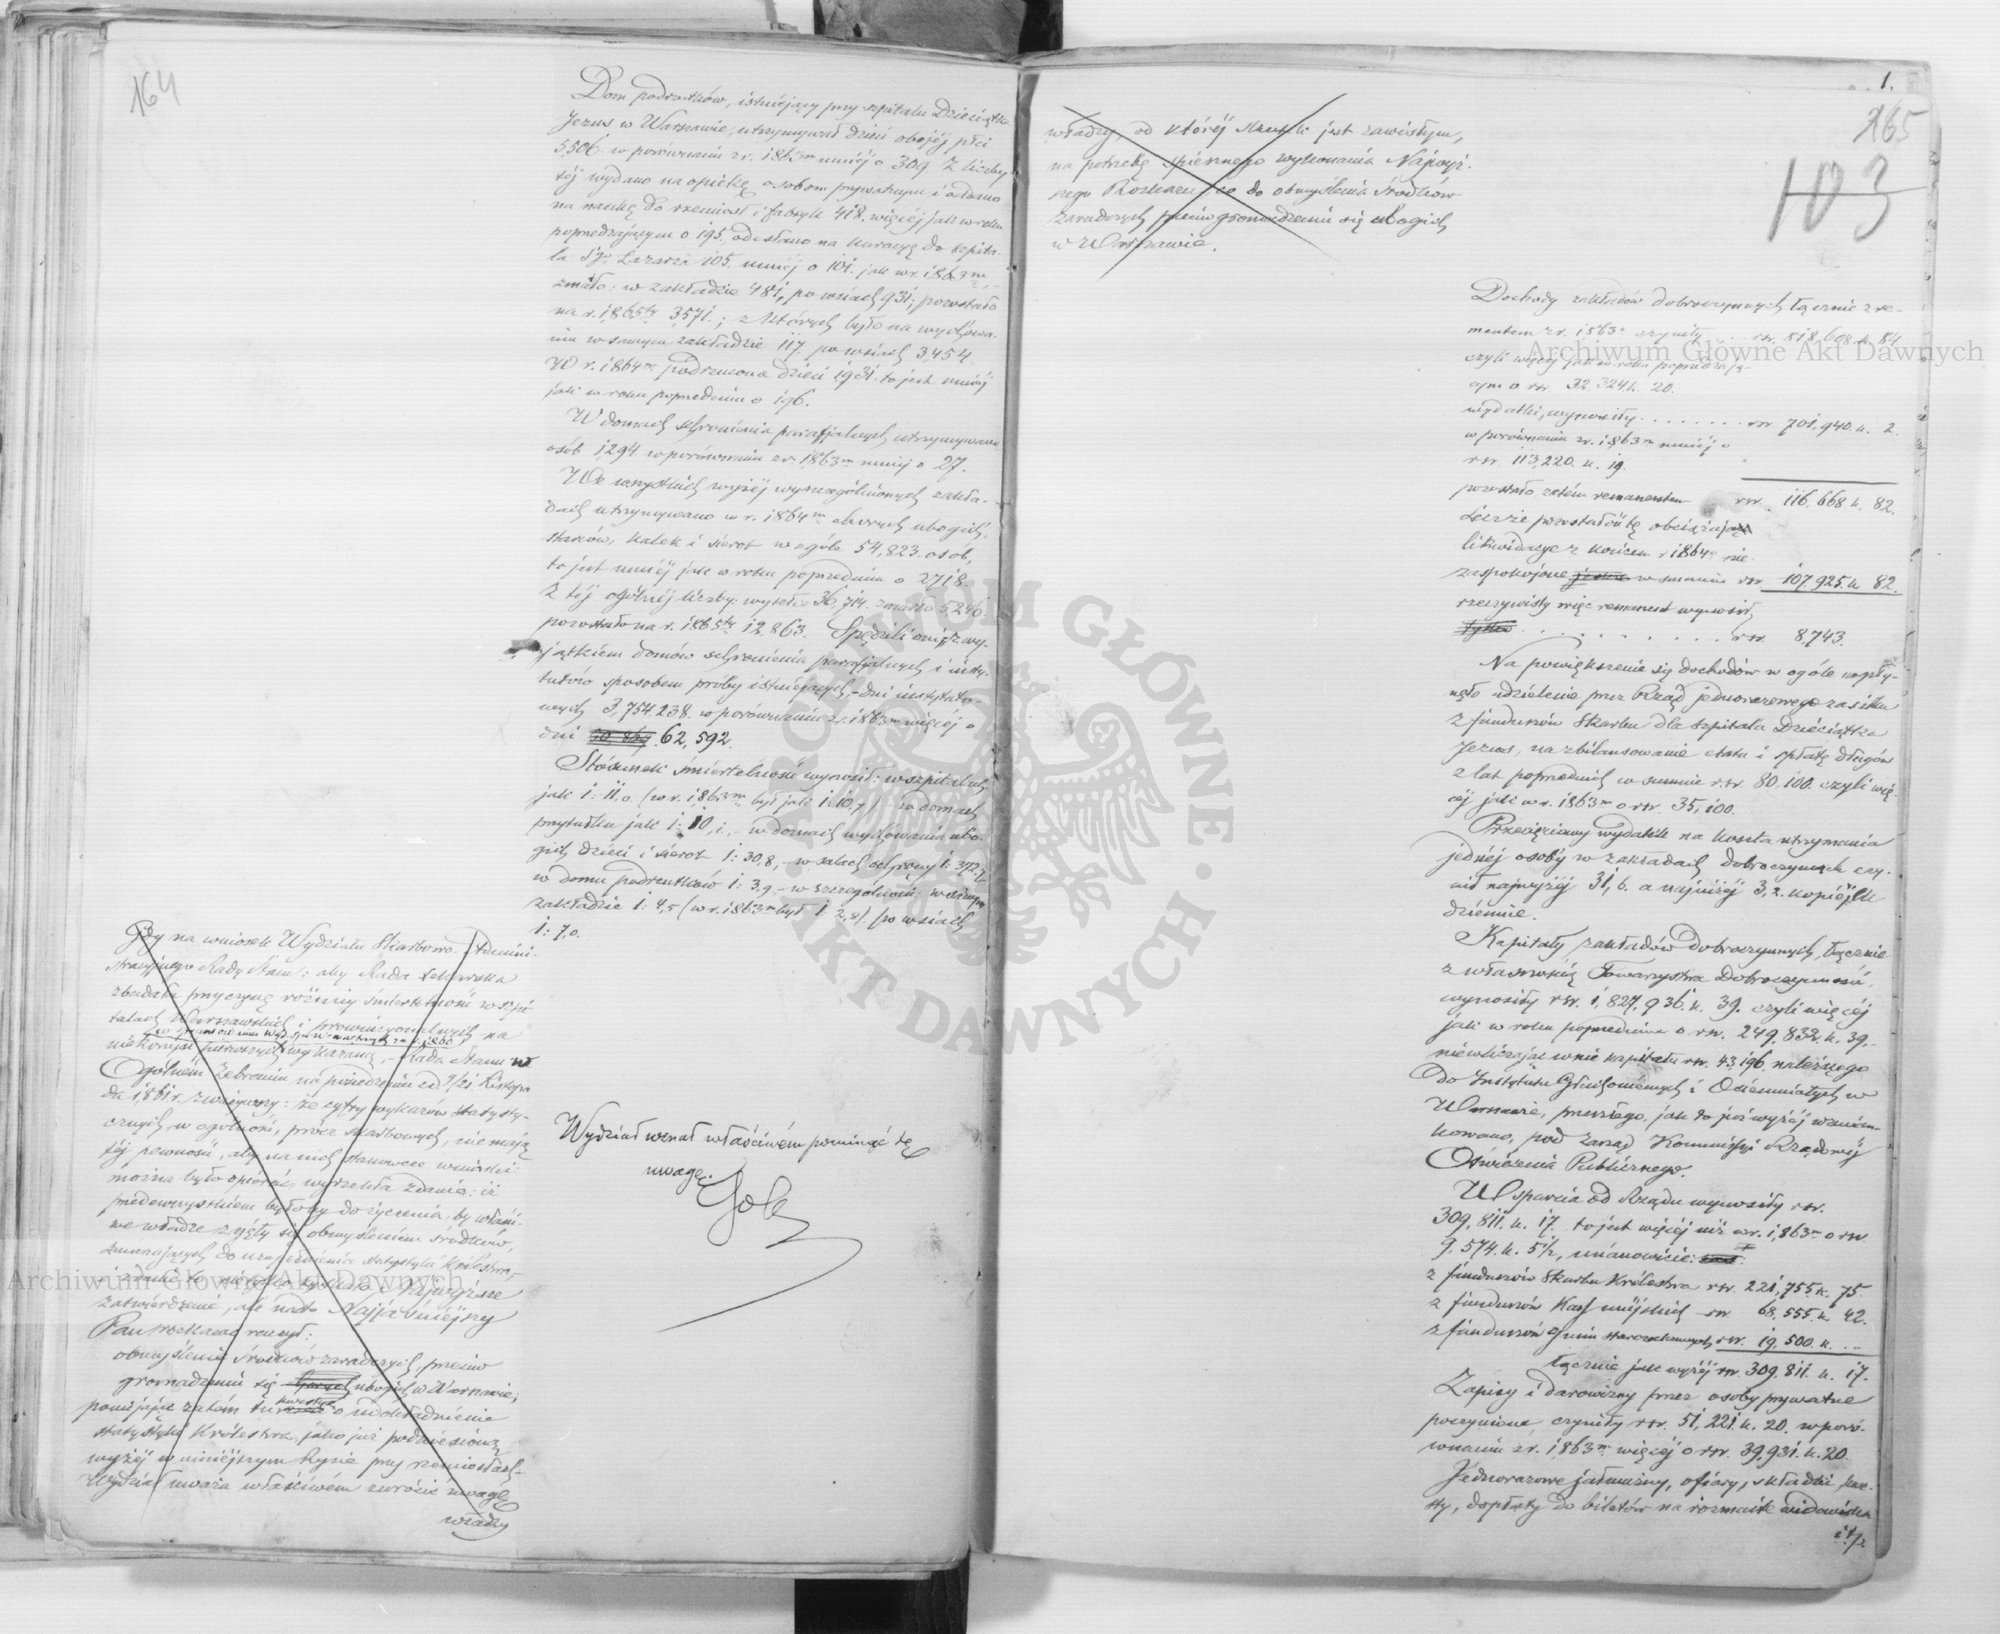 164
Dom podrzutków, istniejący przy szpitalu Dzieciątka
Jezus w Warszawie, utrzymywał dzieci obojéj płci
5,506 w porównaniu z r. 1863m mniéj o 309. Z liczby
téj wydano na opiekę osobom prywatnym i oddano
na naukę do rzemiosł i fabryk 418. więcéj jak w roku
poprzedzającym o 195, odesłano na kuracyę do szpita-
la Sgo Łazarza 105. mniéj o 101. jak w r. 1863m,
zmarło: w zakładzie 481, po wsiach 931; pozostało
na r. 1865ty 3,571.; z których było na wychowa-
niu w samym zakładzie 117. po wsiach 3,454.
W r. 1864m podrzucono dzieci 1931. to jest mniéj
jak w roku poprzednim o 196.
W domach schronienia parafjalnych utrzymywano
osób 1,294 w porównaniu z r. 1863m mniéj o 27.
We wszystkich wyżéj wyszczególnionych zakła-
dach utrzymywano w r. 1864m chorych ubogich,
starców, kalek i sierot w ogóle 54,823. osób,
to jest mniéj jak w roku poprzednim o 2718.
Z téj ogólnéj liczby: wyszło 36,714. zmarło 5246
pozostało na r. 1865ty 12,863. Spędzili oni, z wy-
jątkiem domów schronienia parafjalnych i insty-
tutów sposobem próby istniejących, dni instytuto-
wych 3,754,238. w porównaniu z r. 1863m więcéj o
dni 62,592.
Stósunek śmiertelności wynosił: w szpitalach
jak 1: 11,0 (w r. 1863m był jak 1: 10,7) w domach
przytułku jak 1: 10,1, - w domach wychowania ubo-
gich dzieci i sierot 1: 30,8, - w salach ochrony 1: 372,7,
w domu podrzutków 1: 3,9 - w szczególności: w samym
zakładzie 1: 4,5 (w r. 1863m był 1: 2,8). po wsiach
1: 7,0.
Gdy na wniosek Wydziału Skarbowo-Admini-
stracyjnego Rady Stanu: aby Rada Lekarska
zbadała przyczynę różnicy śmiertelności w szpi-
talach Warszawskich i prowincyonalnych na
niekorzyść pierwszych wykazaną, - Rada Stanu w
Ogólném Zebraniu na posiedzeniu z d 9/21 Listopa
da 1861 r. zważywszy: że cyfry wykazów statysty-
cznych w ogólności, prócz skarbowych, nie mają
téj pewności, aby na nich stanowcze wnioski
można było opierać, wyrzekła zdanie: iż
przedewszystkiem byłoby do życzenia, by właści-
we władze zajęły się obmyśleniem środków,
zmierzających do uzupełnienia statystyki Królestwa,
zatwierdzenie, ale nadto Najjaśniejszy
Pan rozkazać raczył:
obmyślenie środków zaradczych, przeciw
gromadzeniu się ubogich w Warszawie;
pomijając zatém tu kwestye o niedokładnienie
statystyki Królestwa, jako już podniesioną
wyżéj w niniejszym Rysie przy rzemiosłach,
Wydział uważa właściwém zwrócić uwagę
władzy
Wydział uznał właściwém pominąć tę
uwagę.
1.
165
103
władzy, od któréj Skutek jest zawisłym,
na potrzebę spiesznego wykonania Najwyż-
szego Rozkazu, co do obmyślenia środków
zaradczych przeciw gromadzeniu się ubogich
w Warszawie.
Dochody zakładów dobroczynnych łącznie z re-
manentem z r. 1863m czyniły . . . rsr. 818,608 k. 84
czyli więcéj jak w roku poprzedzają-
cym o rsr. 32,324 k. 20.
wydatki, wynosiły . . . . . . . . rsr 701,940. k. 2.
w porównaniu z r. 1863m mniéj o
rsr. 113,220. k. 19.
pozostało zatém remanentem rsr. 116,668 k. 82.
Lecz że pozostałość tę obciążają
likwidacye z końcem r 1864go nie-
zaspokojone w summie rsr 107,925. k 82.
rzeczywisty więc remanent wynosił
. . . . . . . . . . rsr. 8,743.
Na powiększenie się dochodów w ogóle wpły-
nęło udzielenie przez Rząd jednorazowego zasiłku
z funduszów Skarbu dla szpitala Dzieciątka
Jezus, na zbilansowanie etatu i spłatę długów
z lat poprzednich w summie rsr. 80,100. czyli wię-
céj jak w r. 1863m o rsr. 35,100.
Przecięciowy wydatek na koszta utrzymania
jednéj osoby w zakładach dobroczynnych czy-
nił najwyżéj 31,6. a najniżéj 3,2. kopiéjek
dziennie.
Kapitały zakładów Dobroczynnych, łącznie
z własnością Towarzystwa Dobroczynności,
wynosiły rsr. 1,827,936 k. 39. czyli więcéj
jak w roku poprzednim o rsr. 249,832. k. 39.-
niewliczając w nie kapitału rsr. 43,196 należącego
do Instytutu Głuchoniemych i Ociemniałych w
Warszawie, przeszłego, jak to już wyżéj wzmian-
kowano, pod zarząd Kommissyi Rządowéj
Oświecenia Publicznego.
Wsparcia od Rządu wynosiły rsr.
309,811. k. 17. to jest więcéj niż w r. 1863m o rsr
9,574. k. 5½, mianowicie:
z funduszów Skarbu Królestwa rsr. 221,755 k. 75
z funduszów Kass miéjskich rsr. 68,555. k. 42.
z funduszów Gmin starozakonnych rsr. 19,500. k. . .
łącznie jak wyżéj rsr 309,811. k. 17.
Zapisy i darowizny przez osoby prywatne
poczynione czyniły rsr. 51,221. k. 20. w porów-
wnaniu z r. 1863m więcéj o rsr. 39,931. k. 20.
Jednorazowe jałmużny, ofiary, składki, kwe-
sty, dopłaty do biletów na rozmaite widowiska
i t p
Archiwum Główne Akt Dawnych
Archiwum Główne Akt Dawnych
ARCHIWUM GŁÓWNE · AKT DAWNYCH ·